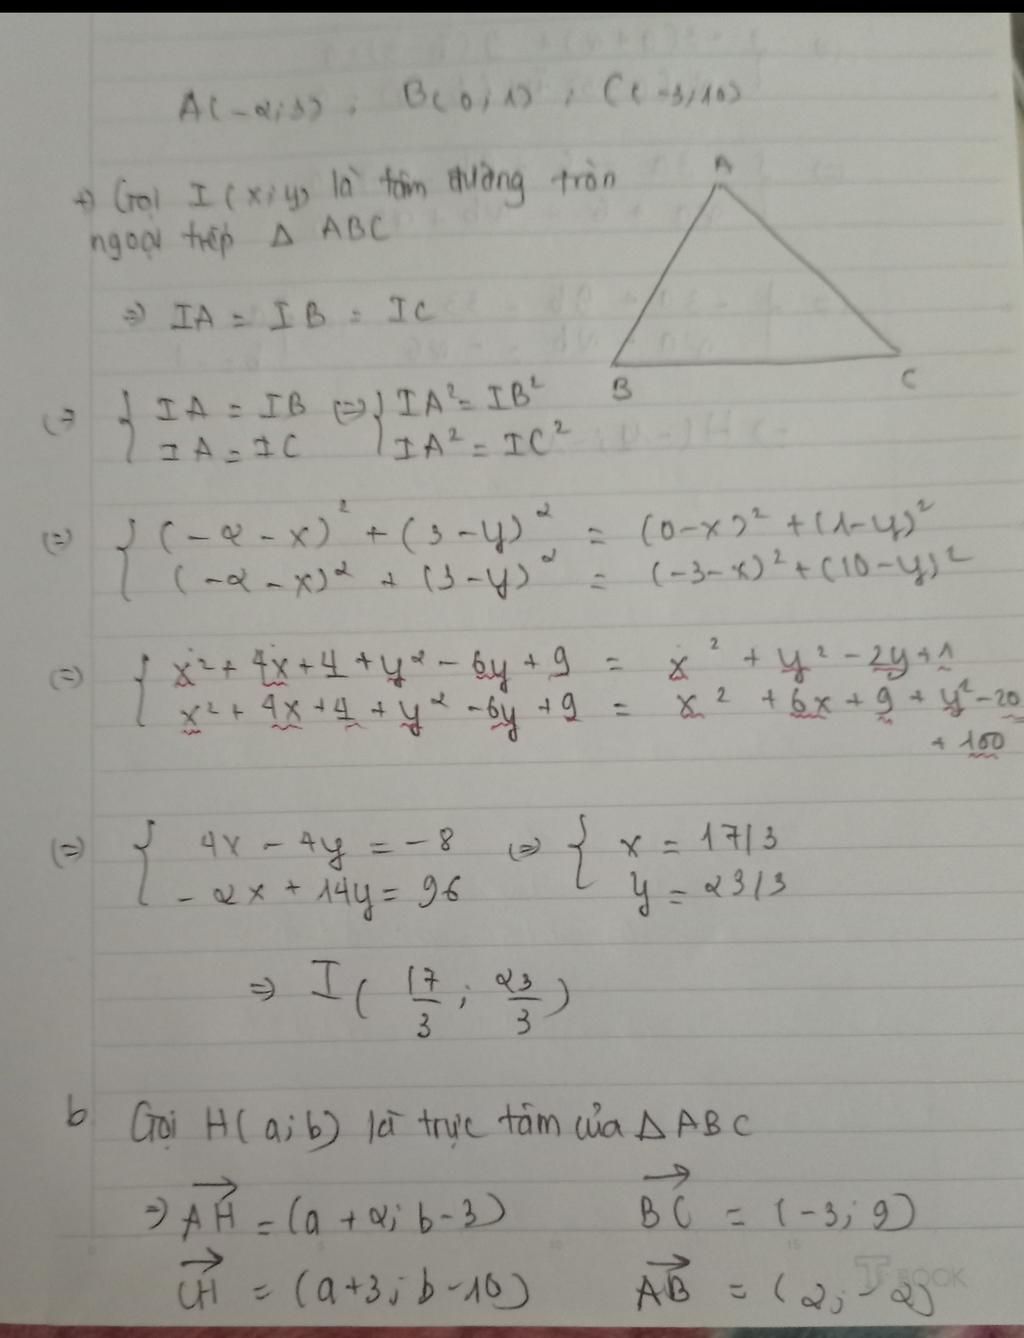 A(-2;3) ; B(0;1) ; C(-3;10)
+) Gọi I(x;y) là tâm đường tròn
ngoại tiếp Δ ABC
A
B
C
=> IA = IB = IC
<=> { IA = IB <=> { IA² = IB²
IA = IC IA² = IC²
<=> { (-2-x)² + (3-y)² = (0-x)² + (1-y)²
(-2-x)² + (3-y)² = (-3-x)² + (10-y)²
<=> { x² + 4x + 4 + y² - 6y + 9 = x² + y² - 2y + 1
x² + 4x + 4 + y² - 6y + 9 = x² + 6x + 9 + y² - 20
+ 100
<=> { 4x - 4y = -8 <=> { x = 17/3
-2x + 14y = 96 y = 23/3
=> I ( 17/3 ; 23/3 )
b Gọi H(a;b) là trực tâm của Δ ABC
=> AH = (a+2; b-3) BC = (-3; 9)
CH = (a+3; b-10) AB = (2; -2)